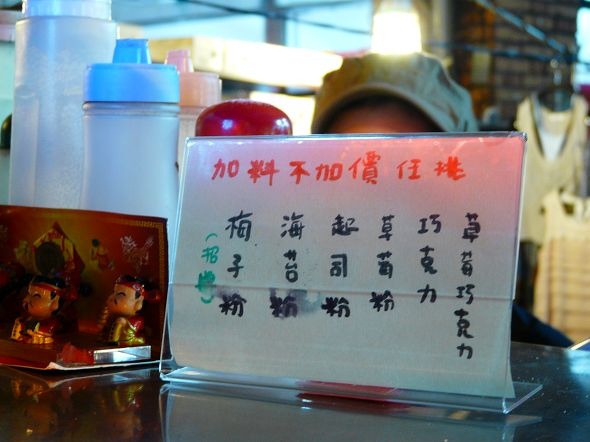 加料不加價任挑
(招牌)
梅子粉
海苔粉
起司粉
草莓粉
巧克力
草莓巧克力